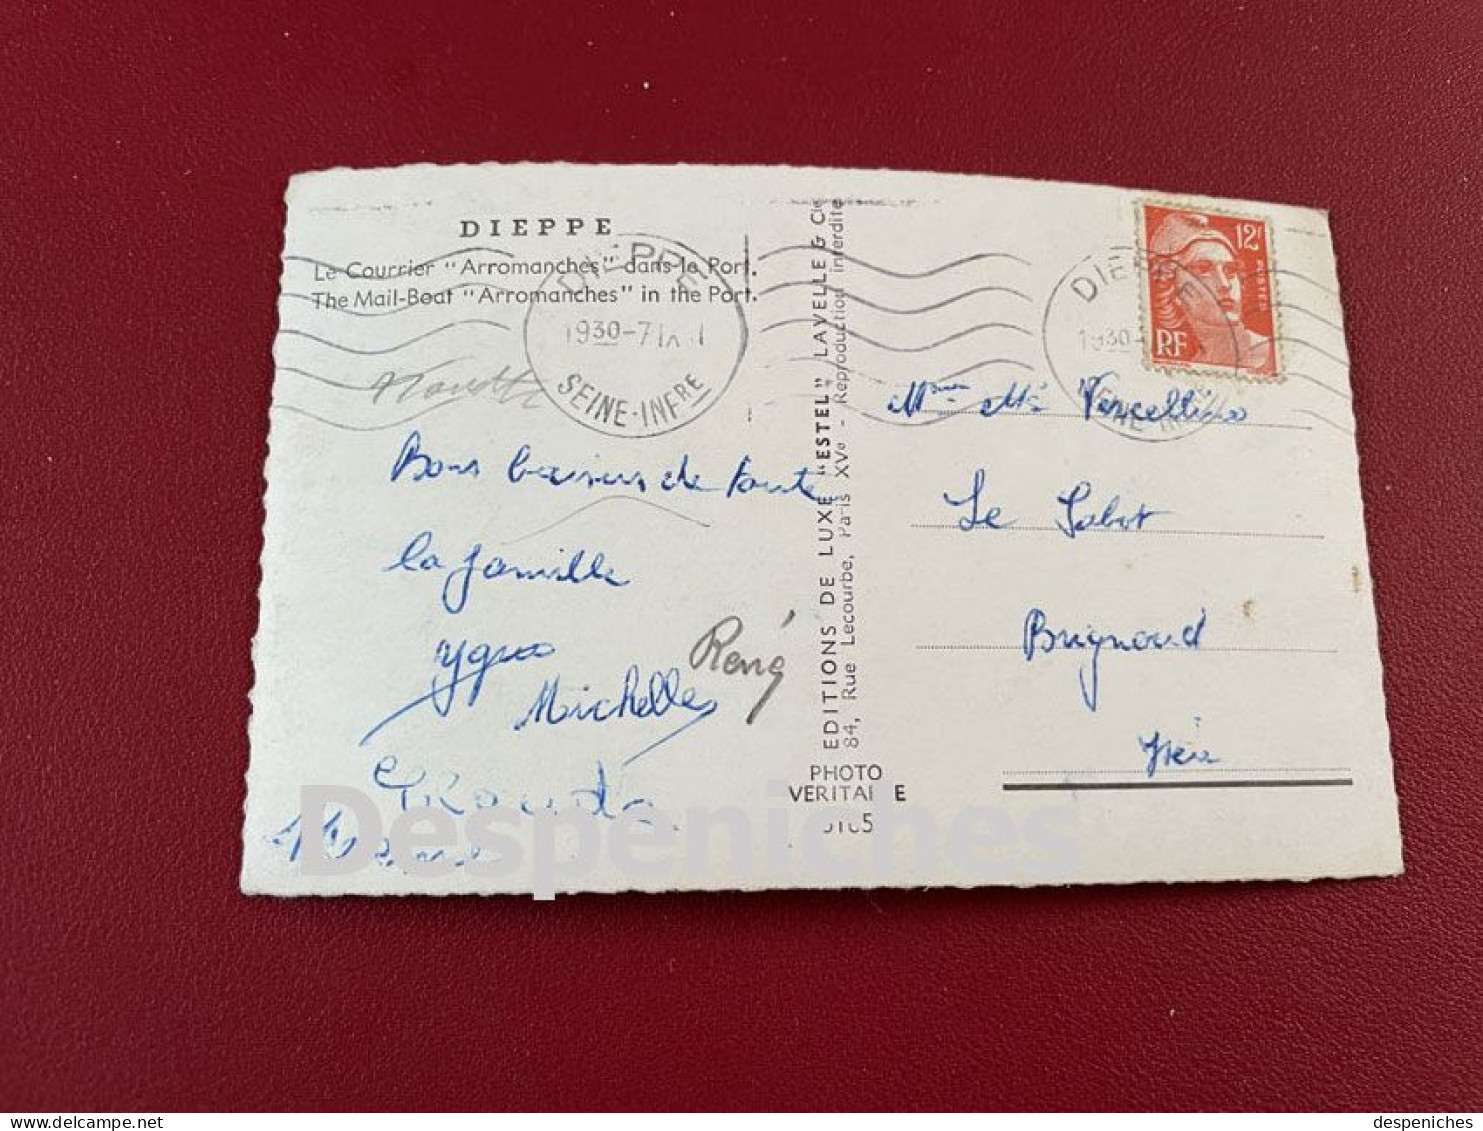 DIEPPE
Le Courrier "Arromanches" dans le Port.
The Mail-Boat "Arromanches" in the Port.
DIEPPE
1930-7
SEINE-INFRE
DIEPPE
1930
12F
POSTES
RF
Bons baisers de toute
la famille
René
Michelle
EDITIONS DE LUXE "ESTEL" LAVELLE & Cie
84, Rue Lecourbe, Paris XVe - Reproduction interdite
PHOTO
VERITABLE
Vercellino
Le Sabot
Brignoud
Isère
Despeniches
delcampe.net
despeniches